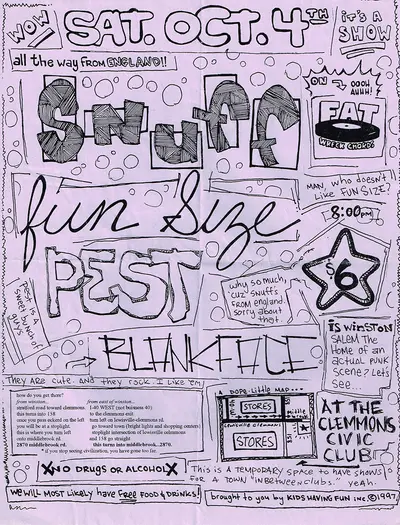 WOW SAT. OCT. 4TH IT'S A SHOW
all the way from ENGLAND!!
Snuff
ON OOOH AHHH!
FAT
WRECK CHORDS
MAN, who doesn't
Like FUN SIZE?
fun Size
8:00pm
PEST
$6
pest is a
sweet bunch of
guys
why so much,
'cuz' snuffs
from england.
sorry about
that.
BLANKFACE
They are cute. and they rock. I like 'em
is winston
SALEM The
Home of an
actual PUNK
scene? Lets
see...
how do you get there?
from winston...
stratford road toward clemmons.
this turns into 158
once you pass tanglewood on the left
you will be at a stoplight.
this is where you turn left
onto middlebrook rd.
2870 middlebrook rd.
from east of winston..
I-40 WEST (not business 40)
to the clemmons exit.
turn left on lewisville-clemmons rd.
go toward town (bright lights and shopping centers)
through intersection of lewisville clemmons
and 158 go straight
this turns into middlebrook...2870.
* if you stop seeing civilization, you have gone too far.
A DOPE-Little MAP
STORES
lewisville clemmons
STORES
AT THE
CLEMMONS
CIVIC
CLUB
X NO DRUGS or ALCOHOL X
This is a TEMPORARY SPACE to HAVE SHOWS
for a TOWN "INBETWEEN CLUBS." yeah.
WE WILL MOST LIKELY HAVE FREE FOOD & DRINKS!
brought to you by KIDS HAVING FUN INC © 1997